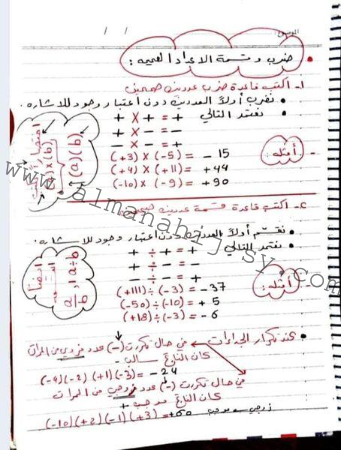 الموضوع / /
ضرب و قسمة الاعداد الصحيحة:
1- اكتب قاعدة ضرب عددين صحيحين
نضرب أولاً العددين دون اعتبار وجود للاشارة.
نعتمد التالي
+ × + = +
+ × - = -
- × - = +
أمثلة:
(+3) × (-5) = - 15
(+4) × (+11) = + 44
(-10) × (-9) = + 90
(a)×(b)
(a)(b)
www.almanahj-sy.com
2- اكتب قاعدة قسمة عددين
نقسم أولاً العددين دون اعتبار وجود للاشارة.
نعتمد التالي
+ ÷ + = +
+ ÷ - = -
- ÷ - = +
أمثلة:
(+111) ÷ (-3) = - 37
(-50) ÷ (-10) = + 5
(+18) ÷ (-3) = - 6
a/b , a÷b
عند تكرار الجداءات
في حال تكررت (-) عدد فردي من المرات
كان الناتج سالب -
(-4)(-2)(+1)(-3) = - 24
في حال تكررت (-) عدد زوجي من المرات
كان الناتج موجب +
(-10)(+2)(-1)(+3) = +60 زوجي موجب